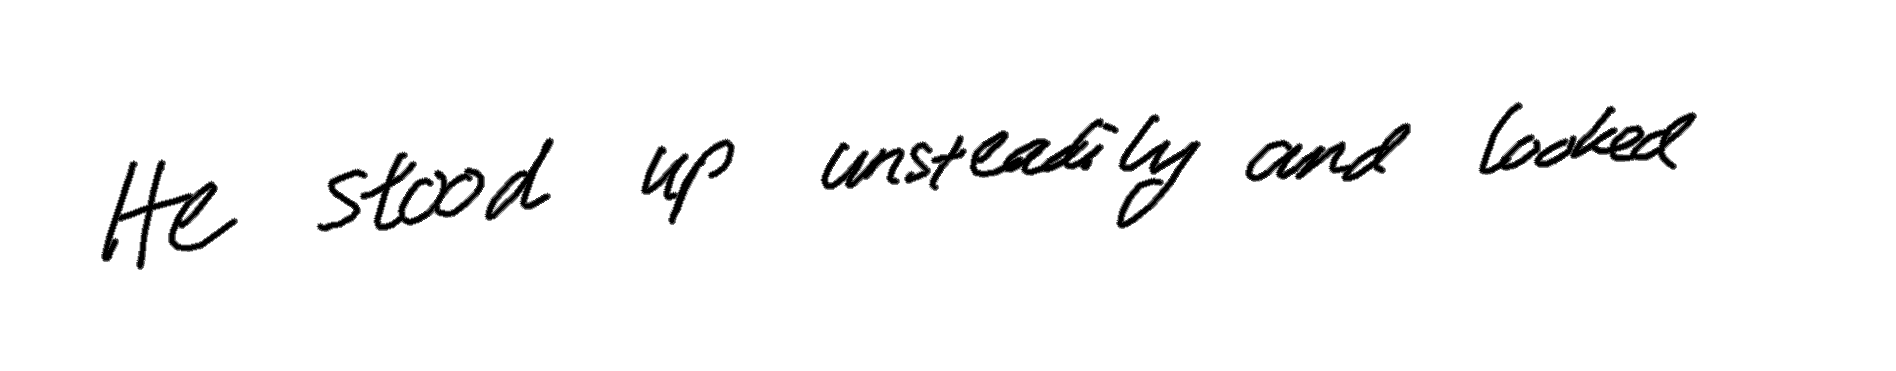 He stood up unsteadily and looked